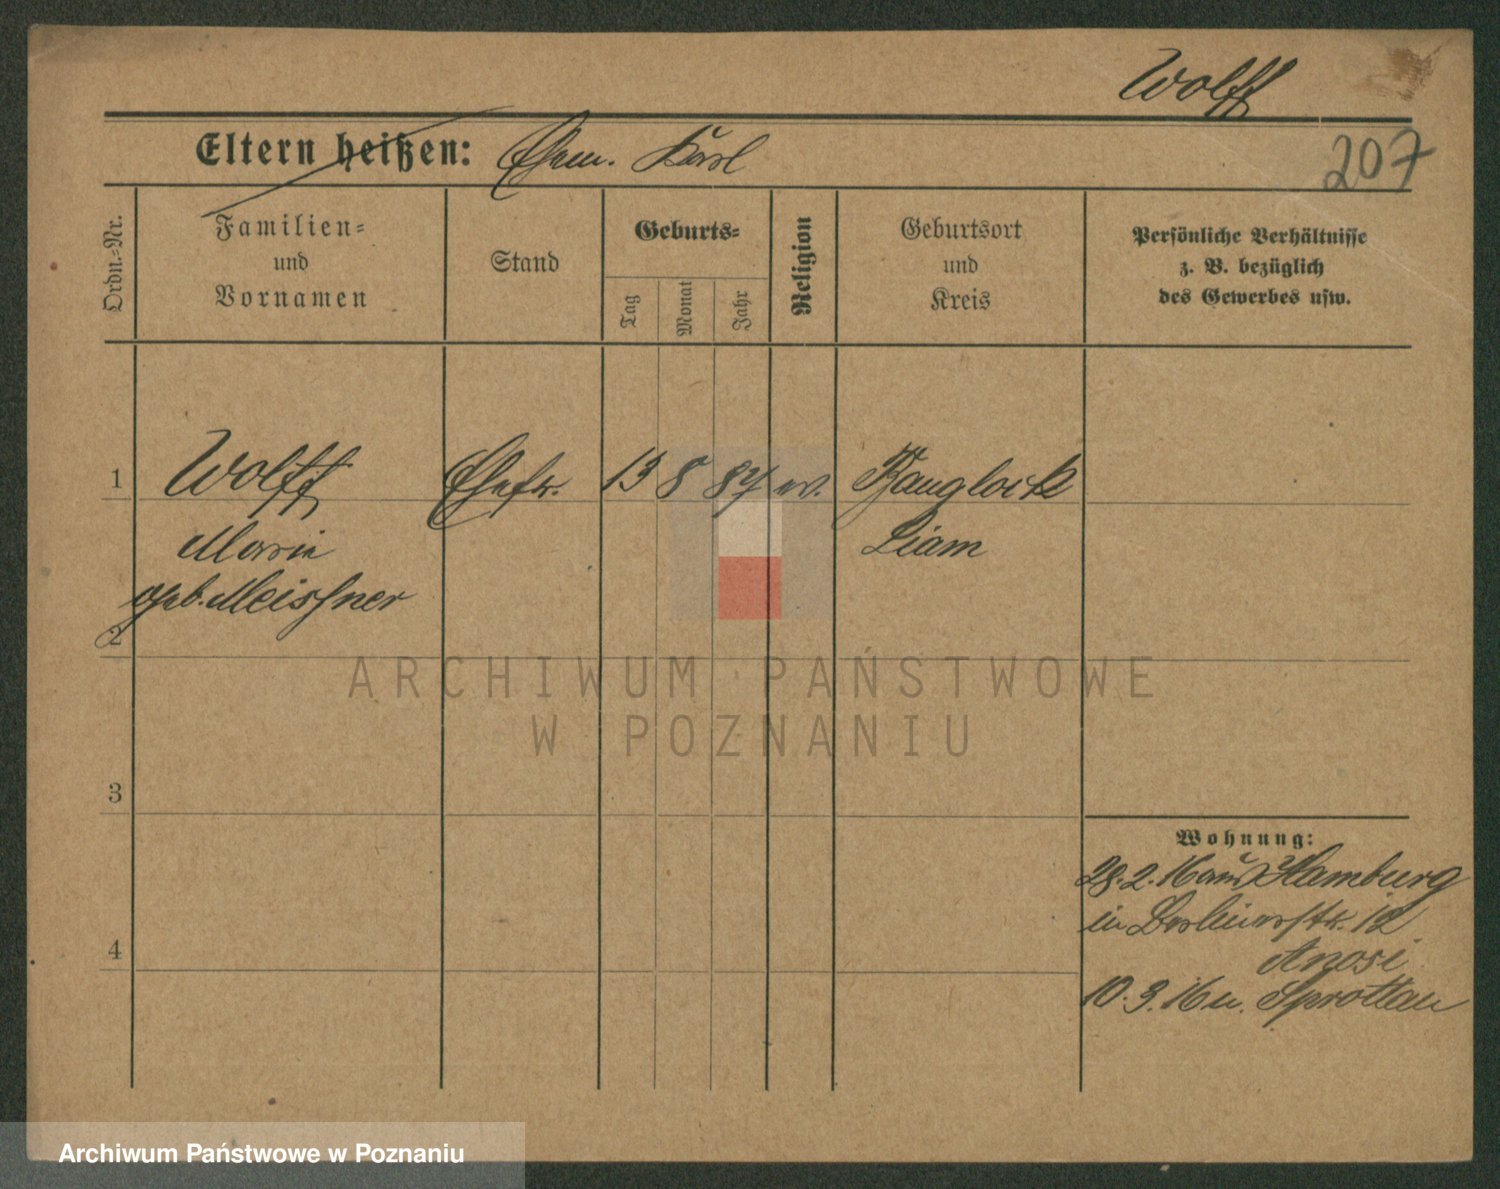 Wolff
Eltern heißen: Ehem. Karl
207
Ordn.-Nr.
Familien-
und
Vornamen
Stand
Geburts-
Tag
Monat
Jahr
Religion
Geburtsort
und
Kreis
Persönliche Verhältnisse
z. B. bezüglich
des Gewerbes usw.
1 Wolff Ehefr. 13 8 84 ev. Banglock
Marie Siam
geb. Meissner
2
3
4
Wohnung:
28.2.16 aus Hamburg
in Berlinerstr. 12
10.3.16 n. Sprottau
ARCHIWUM PAŃSTWOWE
W POZNANIU
Archiwum Państwowe w Poznaniu